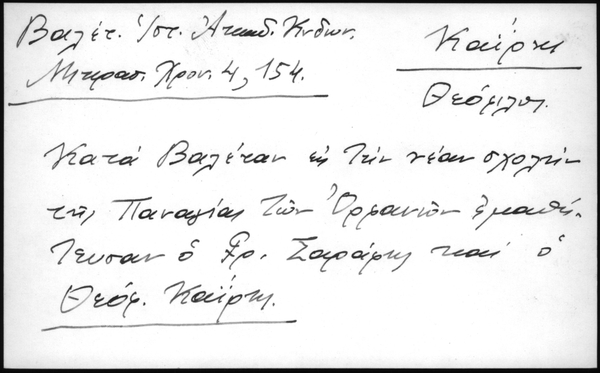 Βαλέτ. Ἱστ. Ἀκαδ. Κυδων.
Μικρασ. Χρον. 4, 154.
Καΐρης
Θεόφιλος.
Κατὰ Βαλέταν εἰς τὴν νέαν σχολὴν
τῆς Παναγίας τῶν Ὀρφανῶν ἐμαθή-
τευσαν ὁ Γρ. Σαράφης καὶ ὁ
Θεόφ. Καΐρης.